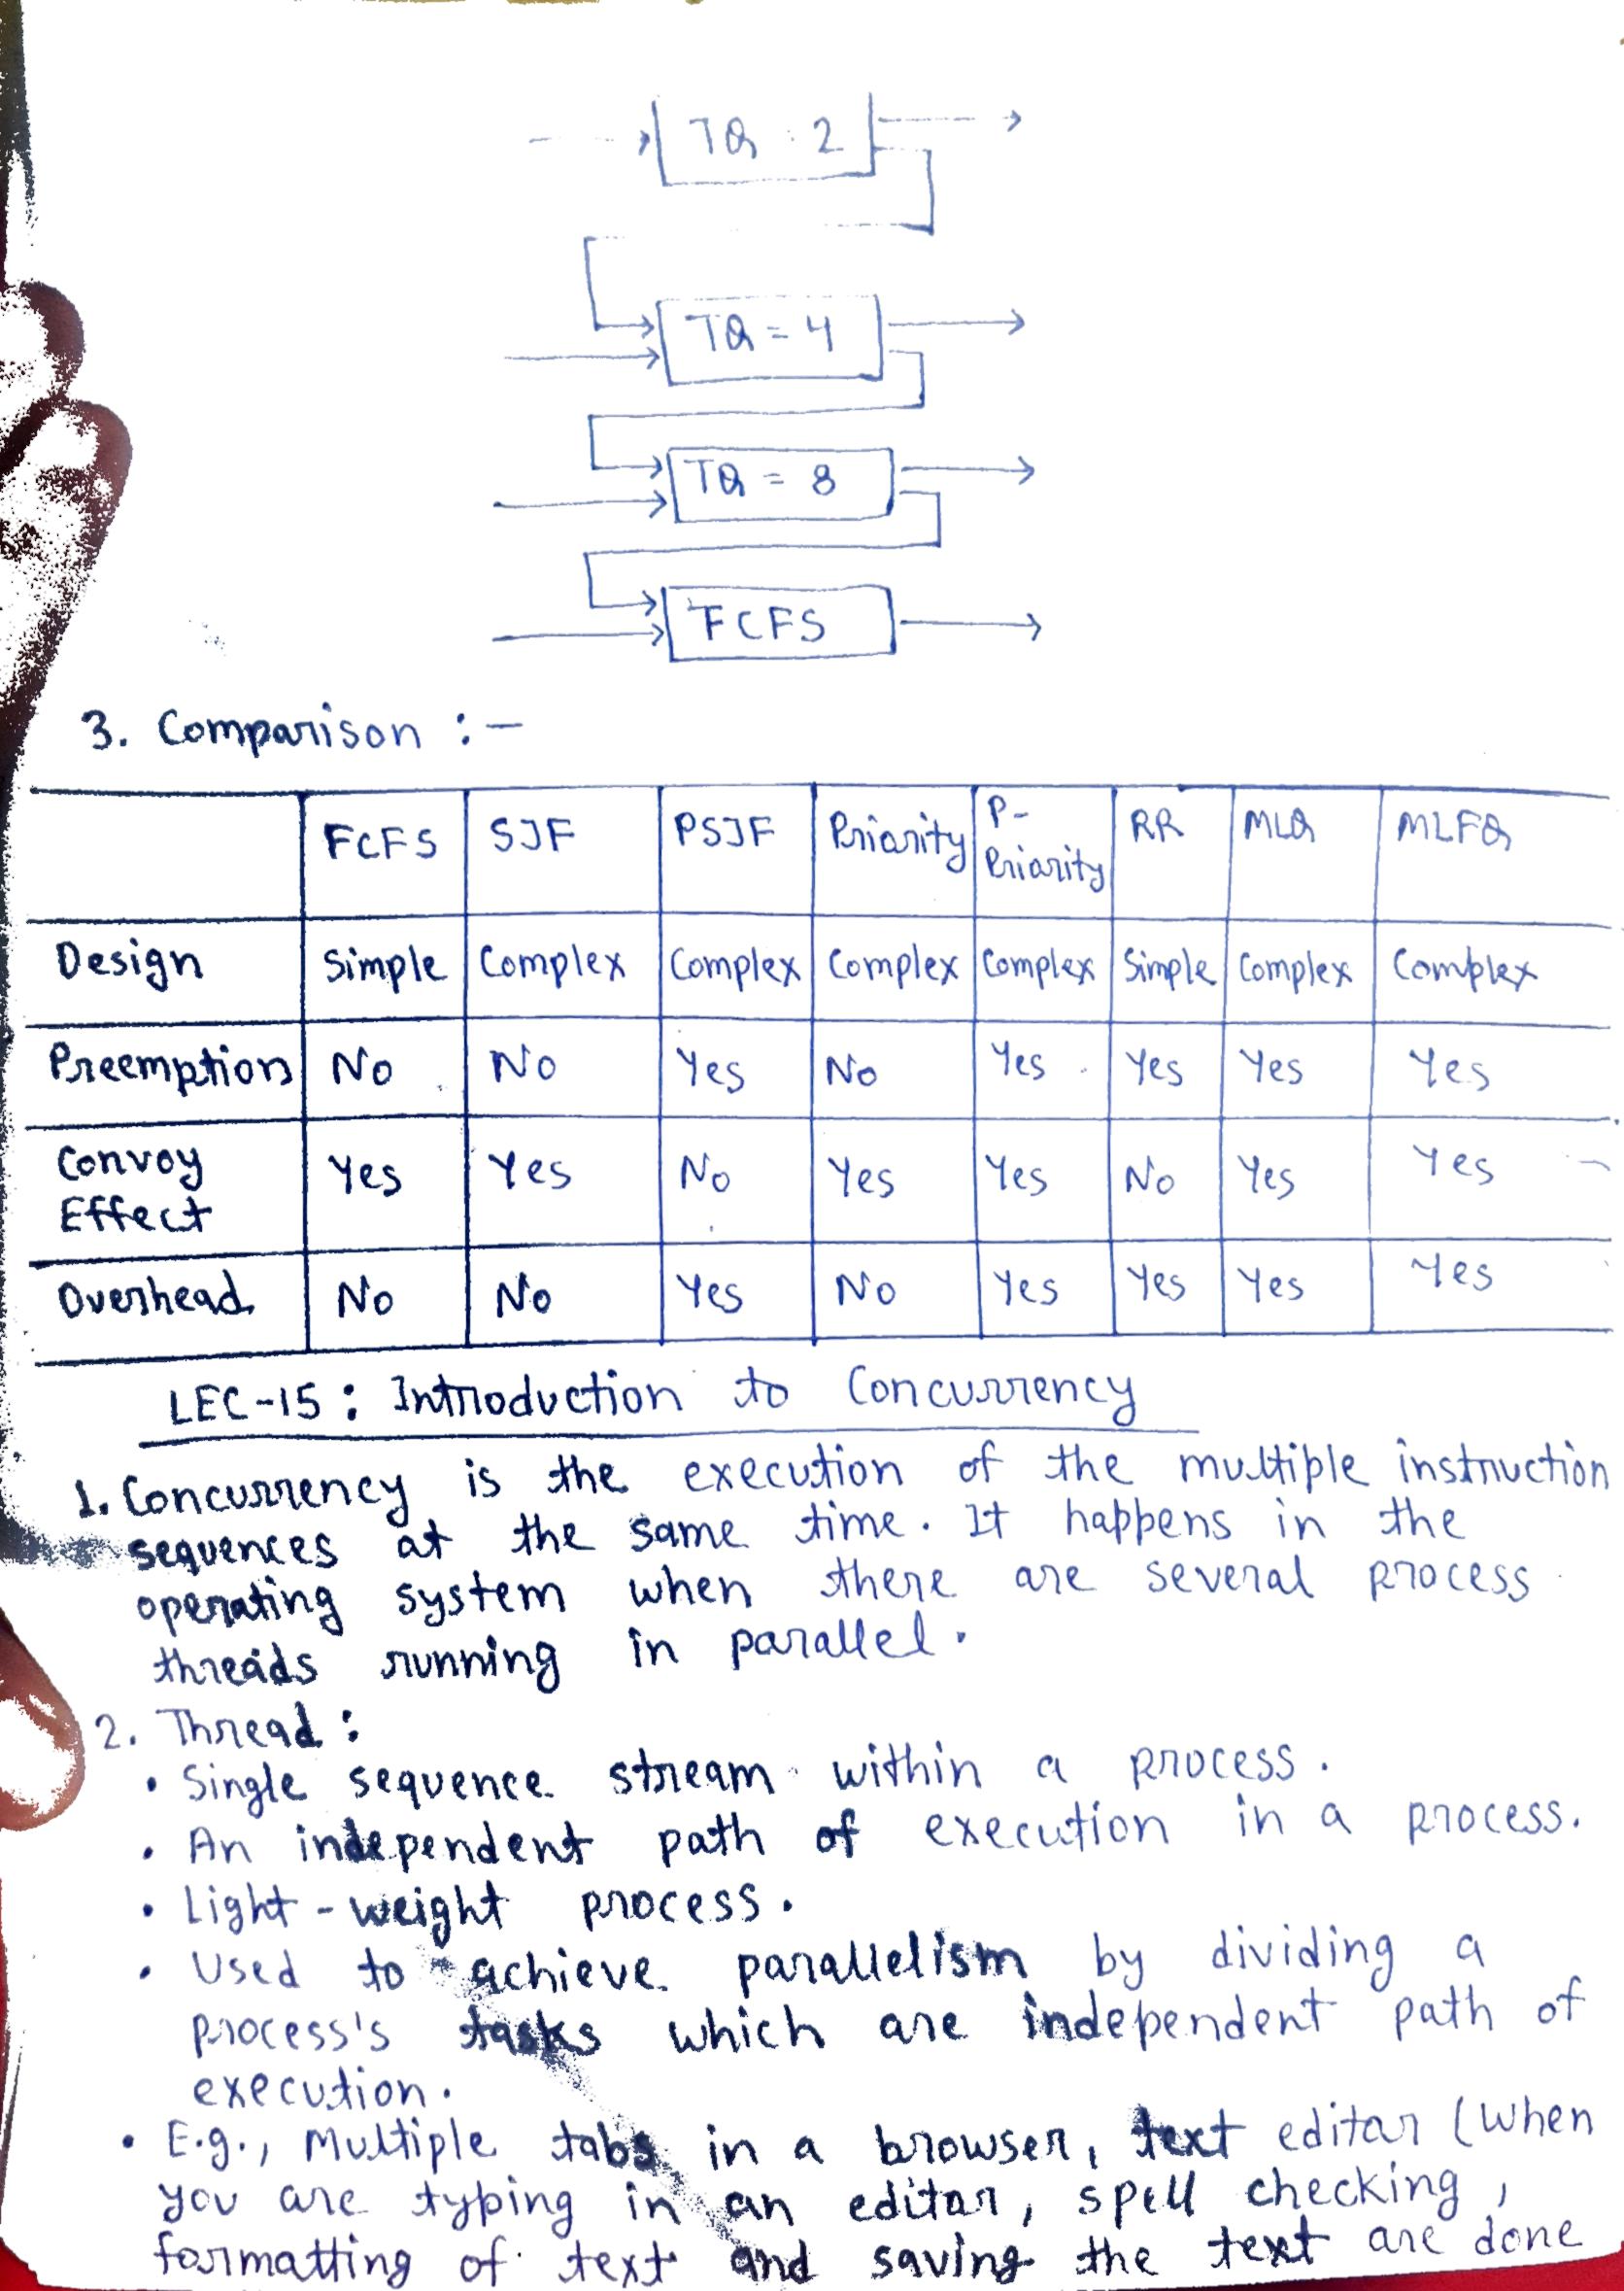 TQ : 2
TQ = 4
TQ = 8
FCFS
3. Comparison :-
FCFS SJF PSJF Priority P-Priority RR MLQ MLFQ
Design Simple Complex Complex Complex Complex Simple Complex Complex
Preemption No No Yes No Yes Yes Yes Yes
Convoy Effect Yes Yes No Yes Yes No Yes Yes
Overhead No No Yes No Yes Yes Yes Yes
LEC-15: Introduction to Concurrency
1. Concurrency is the execution of the multiple instruction
sequences at the same time. It happens in the
operating system when there are several process
threads running in parallel.
2. Thread:
• Single sequence stream within a process.
• An independent path of execution in a process.
• Light-weight process.
• Used to achieve parallelism by dividing a
process's tasks which are independent path of
execution.
• E.g., Multiple tabs in a browser, text editor (when
you are typing in an editor, spell checking,
formatting of text and saving the text are done